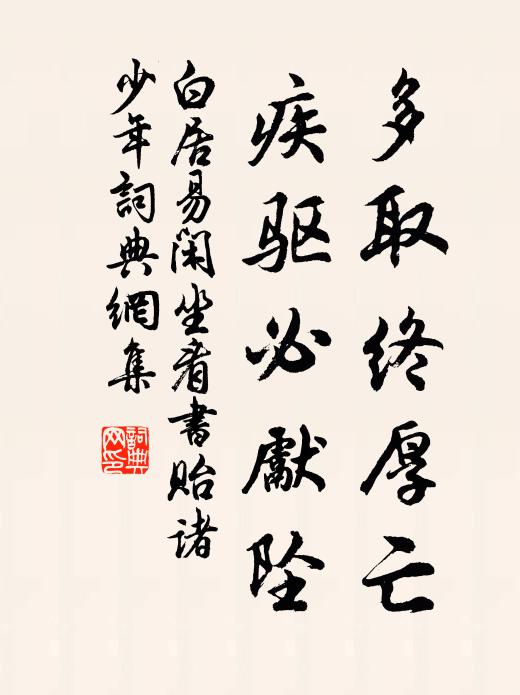 多取终厚亡
疾驱必獻坠
白居易闲坐看書贻诸
少年詞典網集
詞典
网印